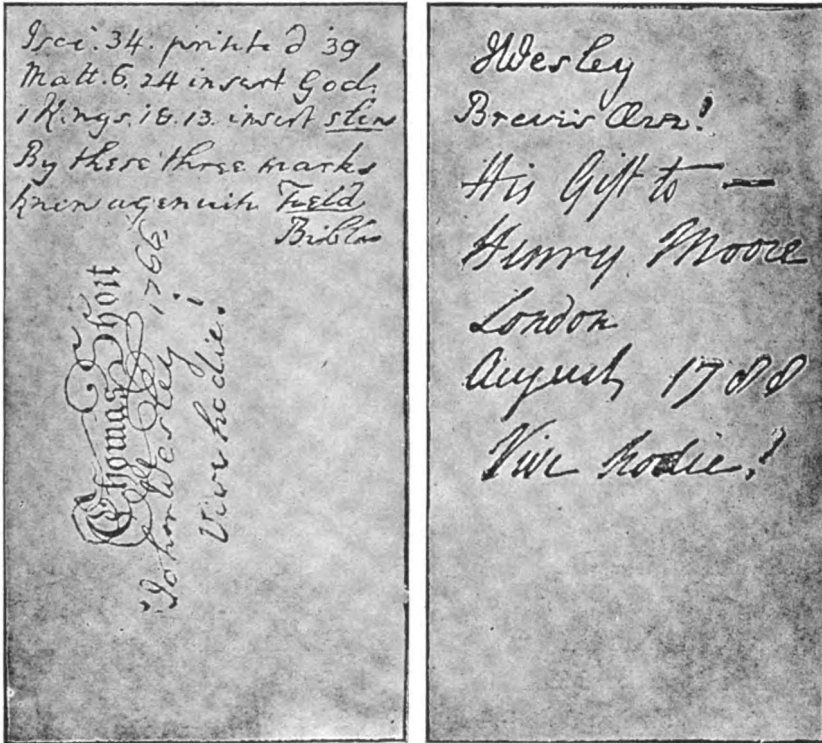 Isai. 34. printed 39
Matt. 6. 24 insert God.
1 Kings. 18. 13. insert slew
By these three marks
know a genuine Field
Bible
Thomas Short
John Wesley 1766
Vive hodie!
JWesley
Brevis
His Gift to —
Henry Moore
London
August, 1788
Vive hodie!